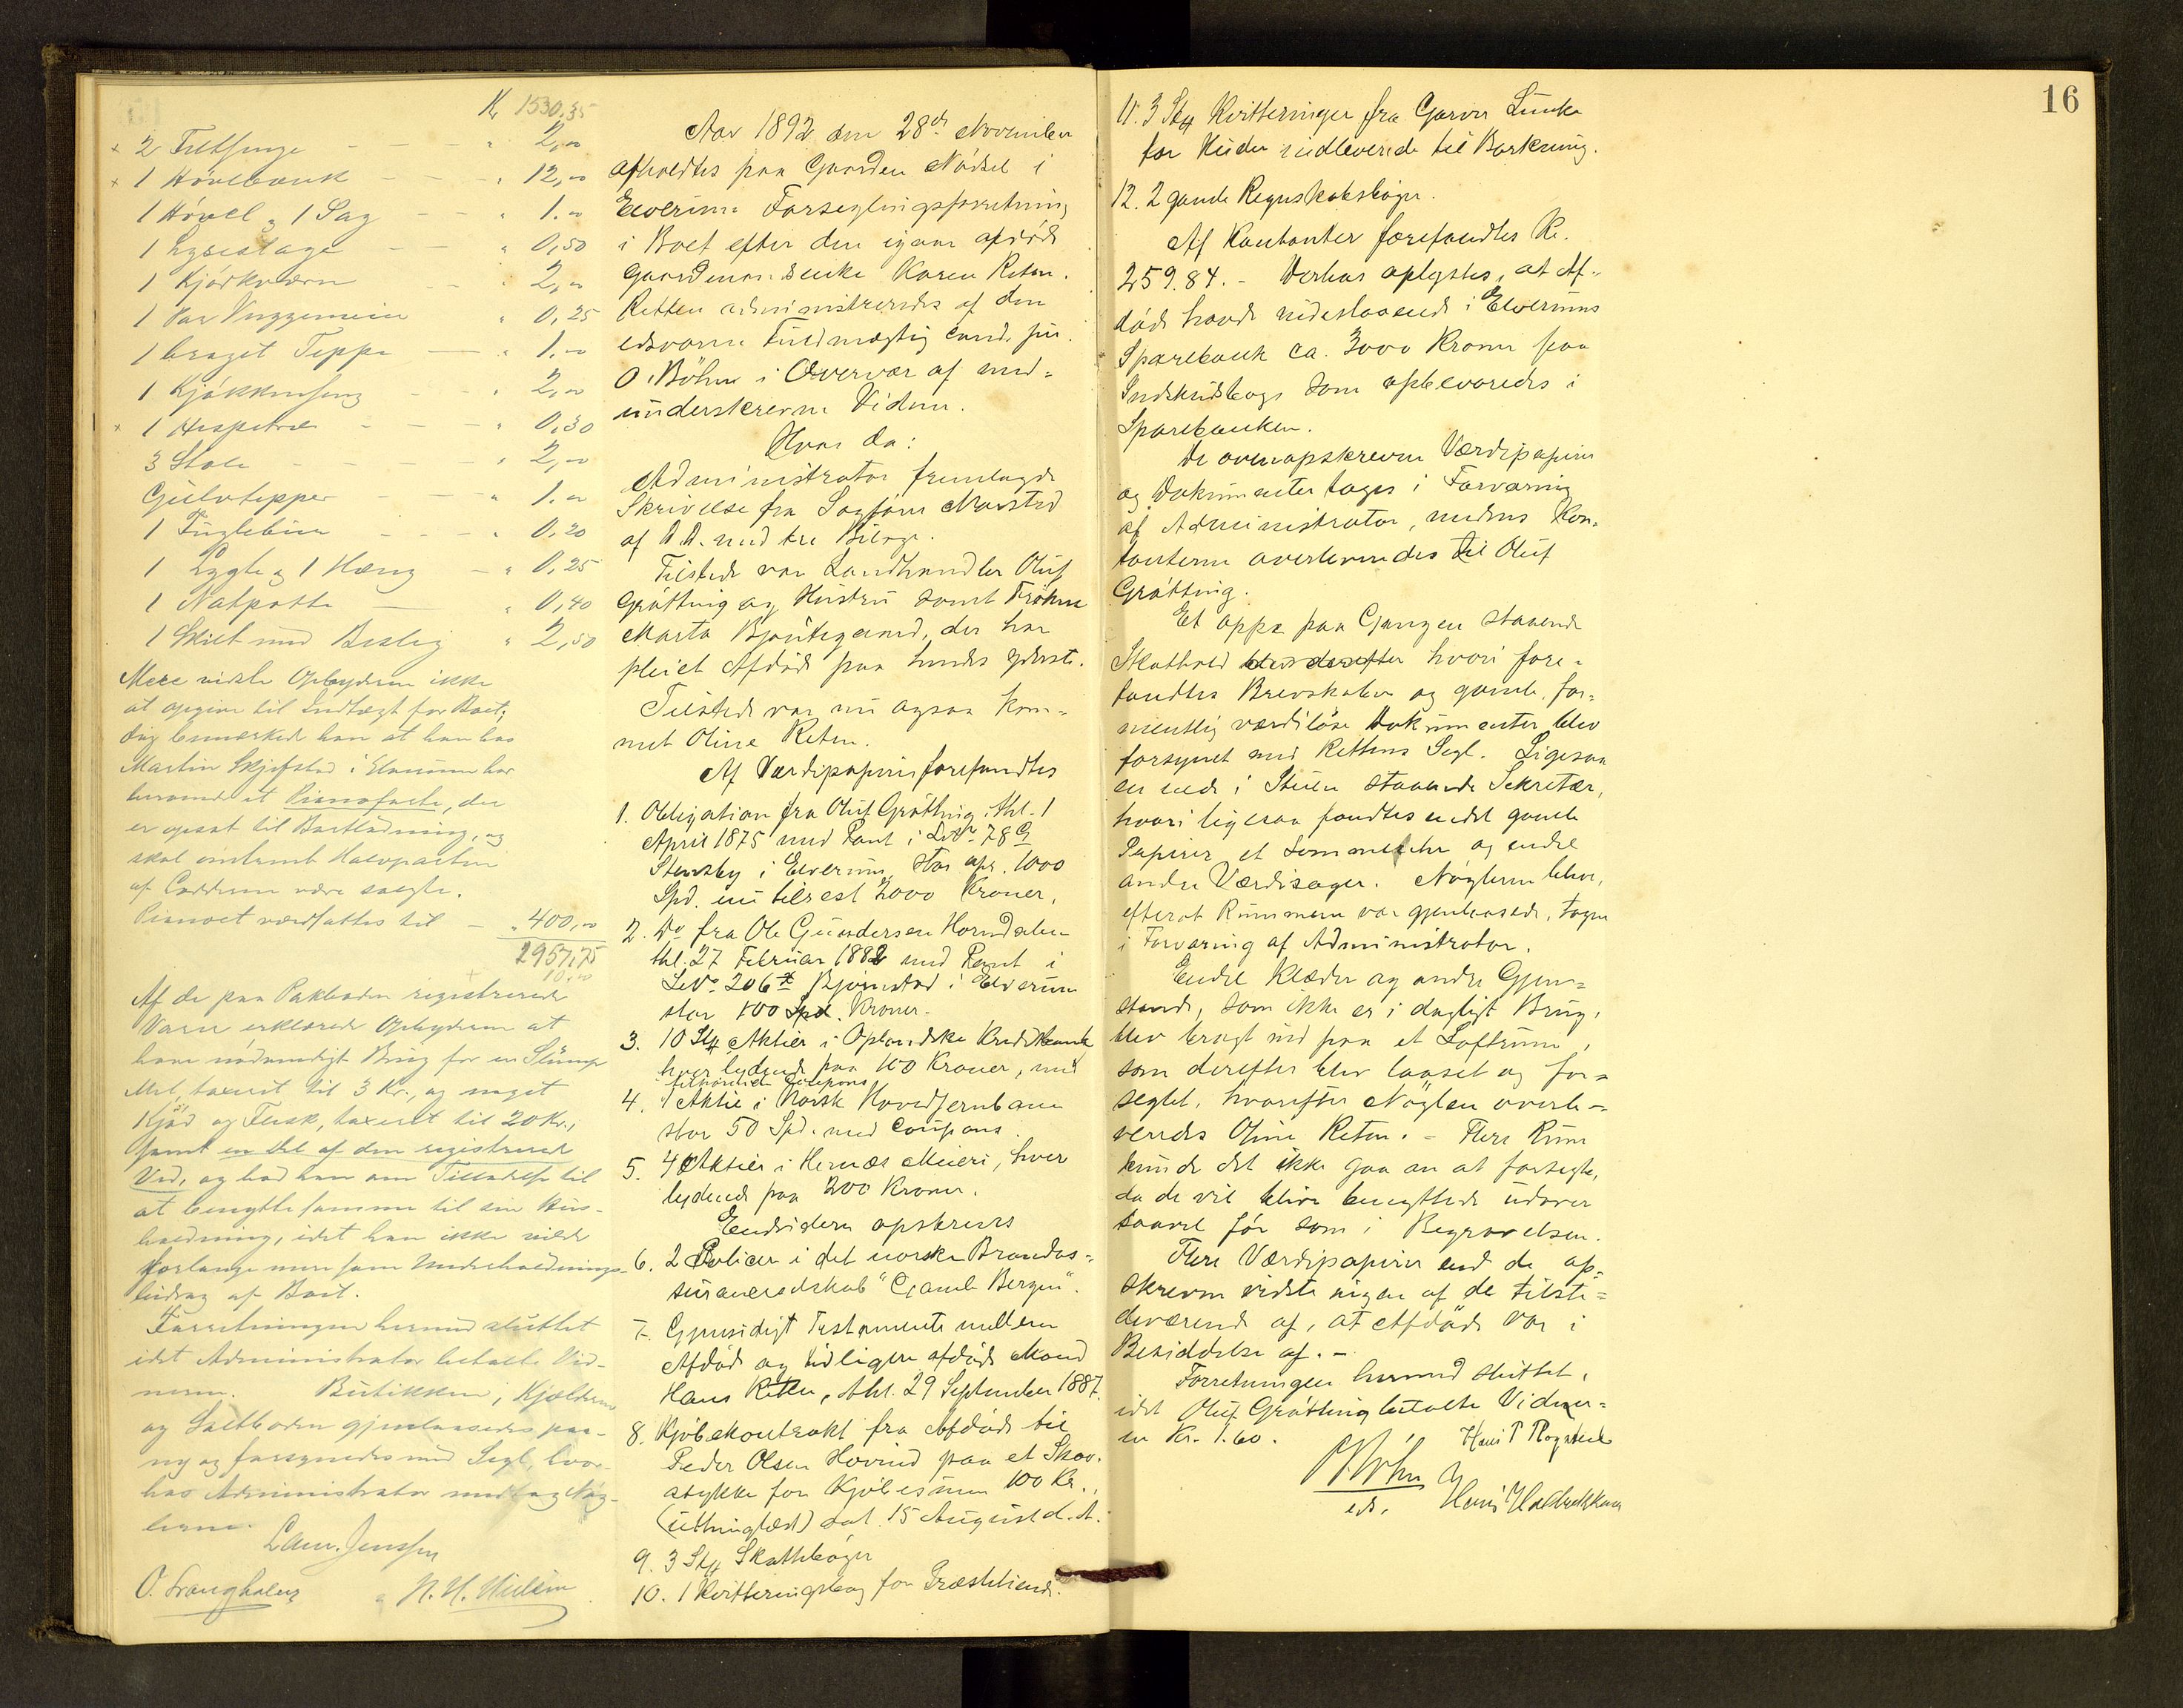 Kr 1530,35
× 2 Feltsenge - - - " 2,00
× 1 Hövlbænk - - - " 12,00
1 Hövel og 1 Sag - - " 1.00
1 Lysestage - - " 0,50
1 Kjödkværn - - " 2,00
1 Par Vuggemeier " 0,25
1 broget Teppe - " 1,00
1 Kjökkenseng - - " 2,00
× 1 Hespetræ - - - " 0,30
3 Stole - - - " 2,00
Gulvtepper - - " 1.00
1 Fuglebur - - - " 0,20
1 Lygte og 1 Hæng - " 0,25
1 Natpotte - " 0,40
1 Skilt med Beslag " 2,50
Mere vidste Opbyderen ikke
at opgive til Indtægt for Boet;
dog bemærkede han at han hos
Martin Skjefstad i Elverum har
beroende et Pianoforte, der
er opsat til Bortlodning, og
skal omtrent Halvparten
af Lodderne være solgte.
Pianoet værdsattes til - " 400,00
2957,75
10.00
Af de paa Pakboden registrerede
Varer erklærede Opbyderen at
have nödvendigt Brug for en Slump
Mel, taxeret til 3 Kr., og noget
Kjöd og Flesk, taxeret til 20 Kr.,
samt en Del af den registrerede
Ved, og bad han om Tilladelse til
at benytte samme til sin Hus-
holdning, idet han ikke vilde
forlange mere som Underholdnings-
bidrag af Boet.
Forretningen hermed sluttet
idet Administrator betalte Vid-
nerne. Butikken, Kjelderen
og Saltboden gjenlaasedes paa-
ny og forsynedes med Segl, hvor-
hos Administrator modtog Nög-
lerne.
Laur. Jenssen
O. Svanghaler N. H. Nielsen
Aar 1892 den 28de November
afholdtes paa Gaarden Nödset i
Elverum Forseglingsforretning
i Boet efter den igaar afdöde
Gaardmandsenke Karen Reten.
Retten administreredes af den
edsvorne Fuldmægtig cand. jur.
O. Böhn i Overvær af ned-
underskrevne Vidner.
Hvor da:
Administrator fremlagde
Skrivelse fra Sagförer Naustad
af D.D. med tre Bilage.
Tilstede var Landhandler Oluf
Grötting og Hustru samt Fröken
Marta Bjöntegaard, der har
pleiet Afdöde paa hendes yderste.
Tilstede var nu ogsaa kom-
met Oline Reten.
Af Værdipapirer forefandtes
1. Obligation fra Oluf Gröttning thl. 1
April 1875 med Pant i LNr. 78 c
Stensby i Elverum, stor opr. 1000
Spd. nu tilrest 2000 Kroner,
2. Do fra Ole Gundersen Horndalen
thl. 27 Februar 1882 med Pant i
LNo. 206 Björnstad i Elverum
stor 800 Spd. Kroner.
3. 10 Stk Aktier i Oplandske Kreditbank
hver lydende paa 100 Kroner, med
tilhörende Coupons
4. 1 Aktie i Norsk Hovedjernbane
stor 50 Spd. med Coupons.
5. 4 Aktier i Hernes Meieri, hver
lydende paa 200 Kroner.
Endvidere opskreves
6. 2 Policer i det norske Brandas-
suranceselskab "Gamle Bergen".
7. Gjensidigt Testamente mellem
Afdöde og tidligere afdöde Mand
Hans Reten, thl. 29 September 1887.
8. Kjöbekontrakt fra Afdöde til
Peder Olsen Hovind paa et Skov-
stykke for Kjöbesum 100 Kr.,
(uthinglæst) dat. 15 August d. A.
9. 3 Stk Skattebøger
10. 1 Kvitteringsbog for Præstetiende.
16
11. 3 Stk Kvitteringer fra Garver Lunke
for Huder indleverede til Barkning.
12. 2 gamle Regnskabsbøger.
Af Kontanter forefandtes Kr.
259.84. - Derhos oplystes, at Af-
döde havde indestaaende i Elverums
Sparebank ca. 3000 Kroner paa
Indskudsbog som opbevaredes i
Sparebanken.
De ovenopskrevne Værdipapirer
og Dokumenter toges i Forvaring
af Administrator, medens Kon-
tanterne overleveredes til Oluf
Gröttning.
Et oppe paa Gangen staaende
Skathold blev derefter hvori fore-
fandtes Brevskaber og gamle, for-
mentlig værdilöse Dokumenter blev
forsynet med Rettens Segl. Ligesaa
en nede i Stuen staaende Sekretær,
hvori ligesaa fandtes endel gamle
Papirer, et Lommeuhr og endel
andre Værdisager. Nöglerne blev,
efterat Rummene var gjenlaasede, tagne
i Forvaring af Administrator.
Endel Klæder og andre Gjen-
stande, som ikke er i dagligt Brug,
blev bragt ind paa et Loftrum,
som derefter blev laaset og for-
seglet, hvorefter Nöglen overle-
veredes Oline Reten. - Flere Rum
kunde det ikke gaa an at forsegle,
da de vil blive benyttede udover
saavel för som i Begravelsen.
Flere Værdipapirer end de op-
skrevne vidste ingen af de tilste-
deværende af, at Afdöde var i
Besiddelse af. -
Forretningen hermed sluttet,
idet Oluf Gröttning betalte Vidner-
ne Kr. 1.60.
O Böhn
eds.